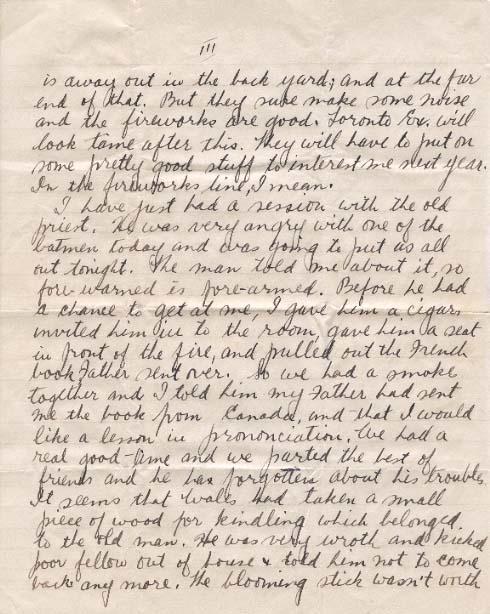 III
is away out in the back yard; and at the far
end of that. But they sure make some noise
and the fireworks are good. Toronto Ex. will
look tame after this. They will have to put on
some pretty good stuff to interest me next year.
In the fireworks line, I mean.
I have just had a session with the old
priest. He was very angry with one of the
batmen today and was going to put us all
out tonight. The man told me about it, so
fore-warned is fore-armed. Before he had
a chance to get at me, I gave him a cigar,
invited him in to the room, gave him a seat
in front of the fire, and pulled out the French
book Father sent over. So we had a smoke
together and I told him my Father had sent
me the book from Canada, and that I would
like a lesson in prononciation. We had a
real good time and we parted the best of
friends and he has forgotten about his troubles.
It seems that Wales had taken a small
piece of wood for kindling which belonged
to the old man. He was very wroth and kicked
poor fellow out of house & told him not to come
back any more. The blooming stick wasn't worth